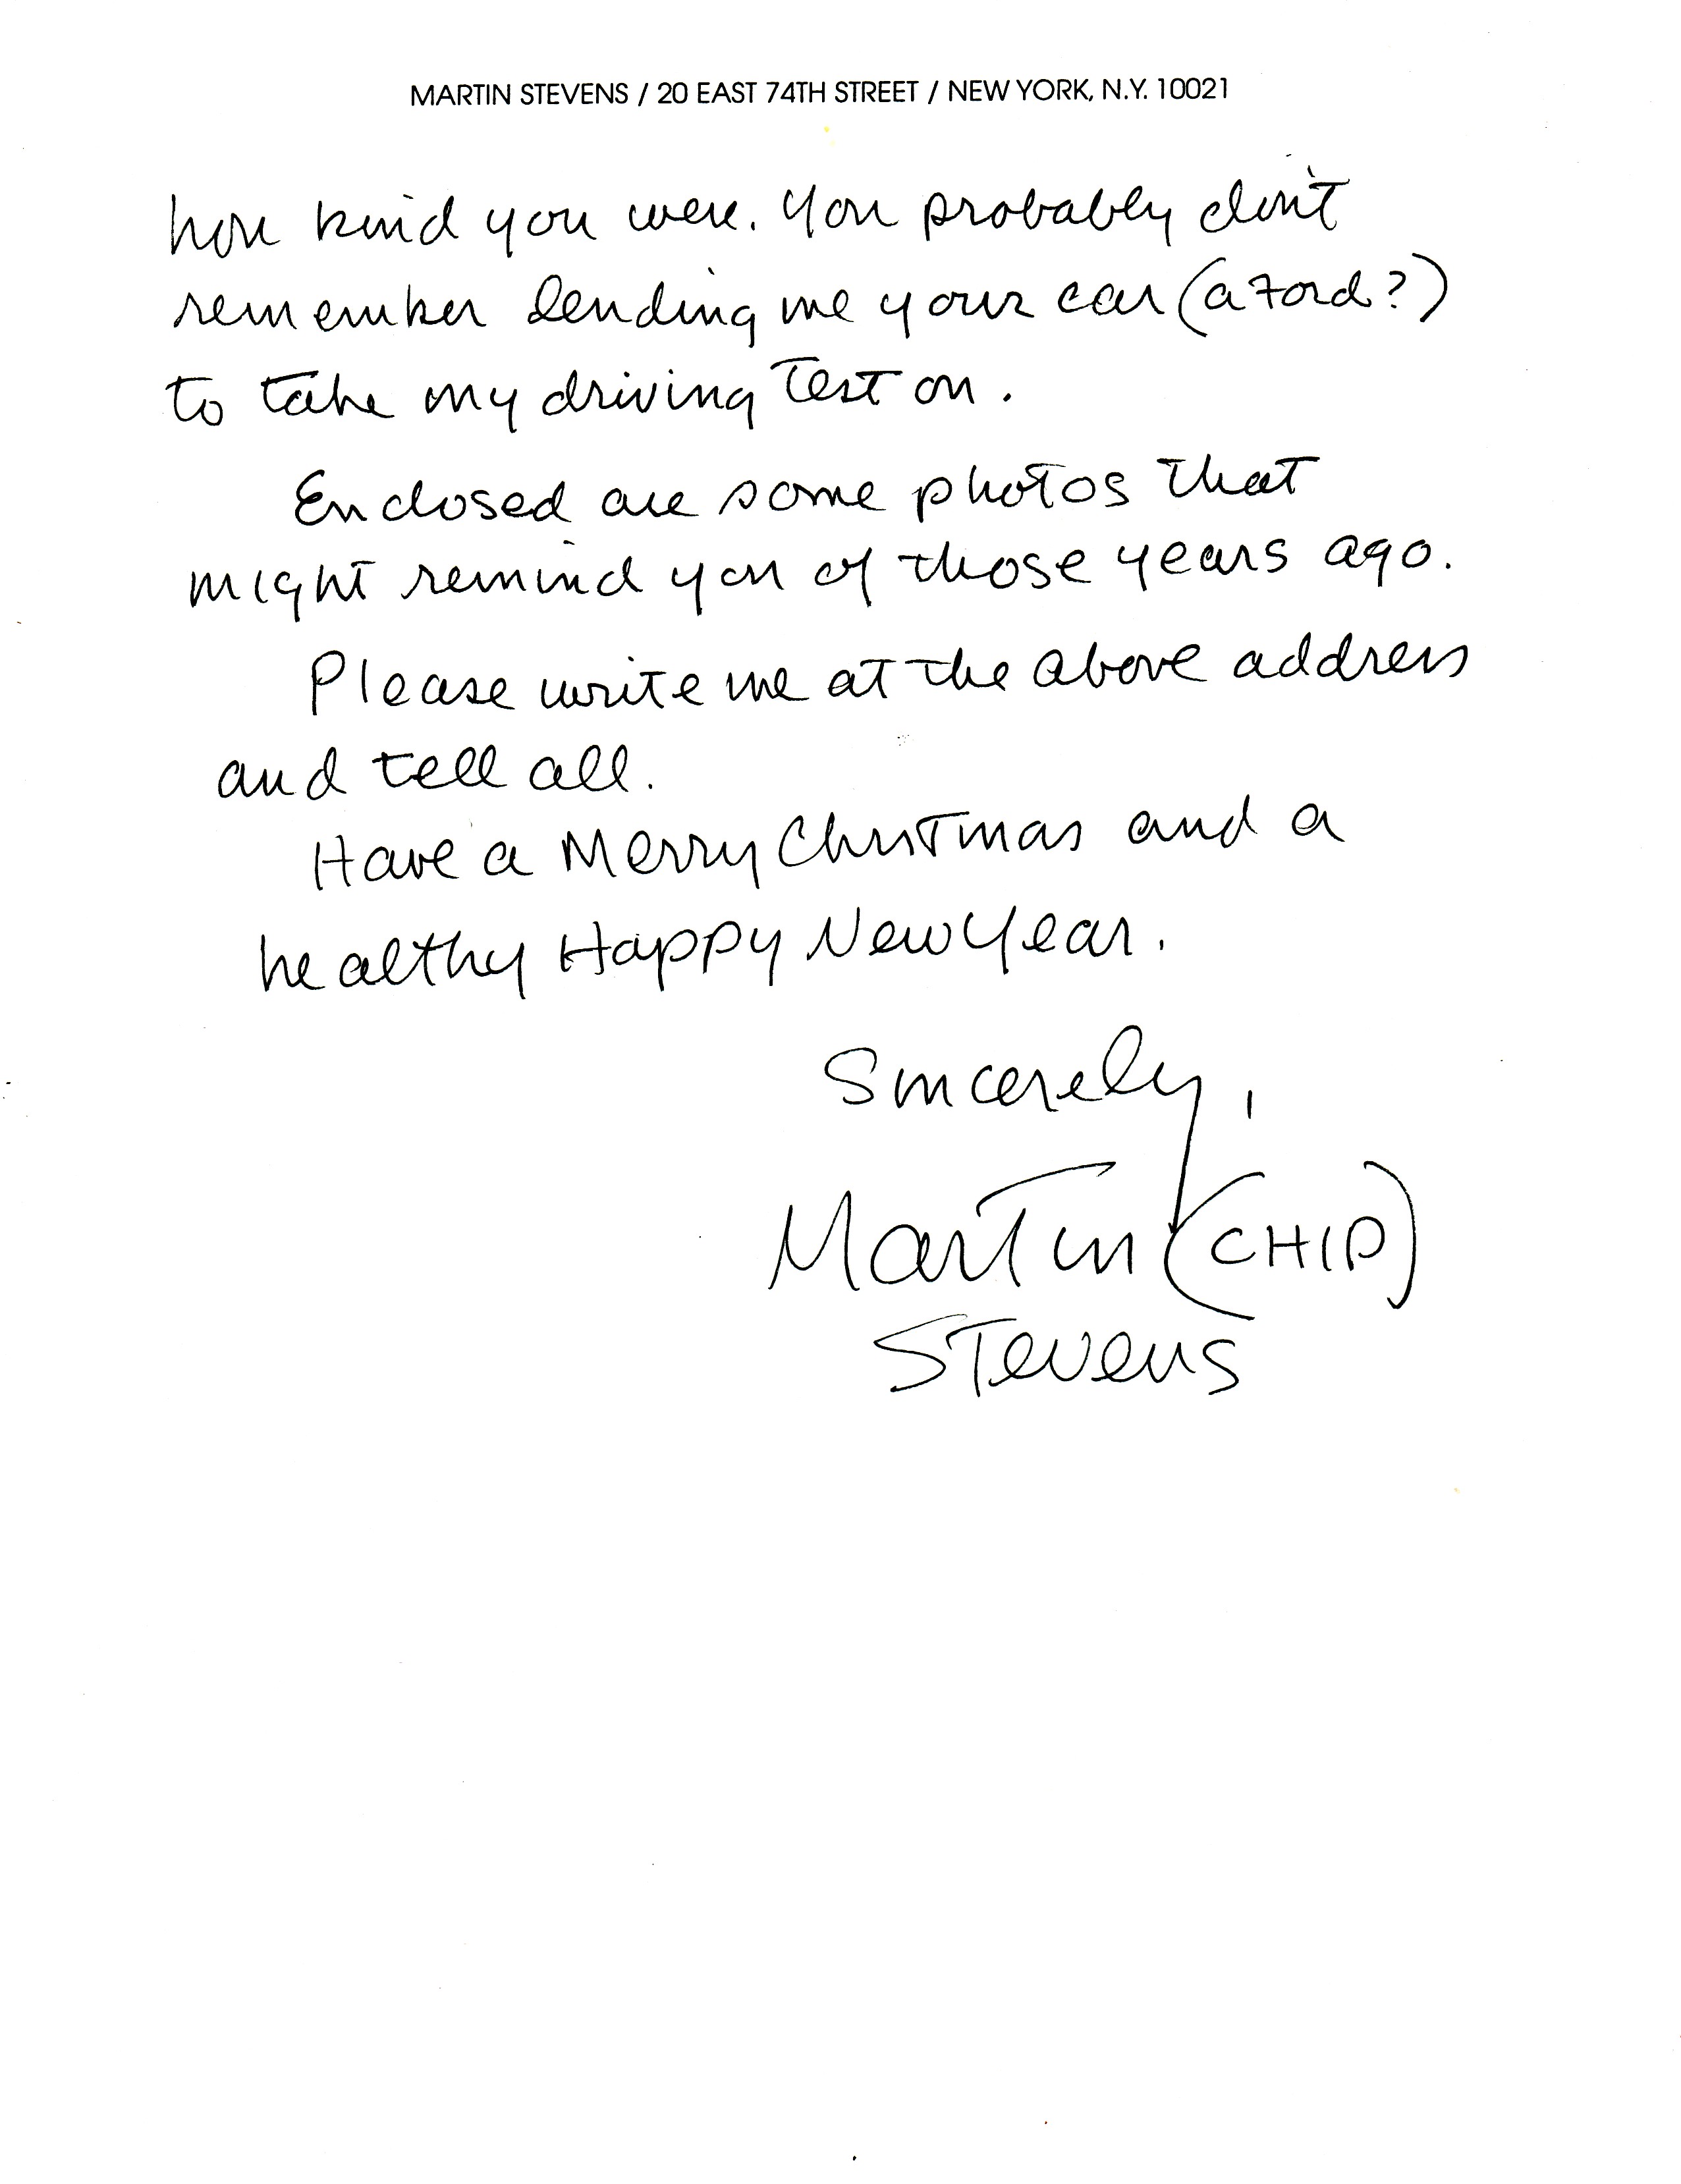 MARTIN STEVENS / 20 EAST 74TH STREET / NEW YORK, N.Y. 10021
how kind you were. You probably don't
remember lending me your car (a Ford?)
to take my driving test on.
Enclosed are some photos that
might remind you of those years ago.
Please write me at the above address
and tell all.
Have a Merry Christmas and a
healthy Happy New Year.
Sincerely,
Martin (CHIP)
Stevens